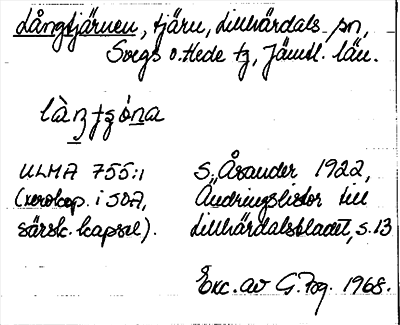 Långtjärnen, tjärn, Lillhärdals sn,
Svegs o. Hede tg, Jämtl. län.
ULMA 755:1 S. Åsander 1922,
(xerokop. i SOA, Ändringslistor till
särsk. kapsel). Lillhärdalsbladet, s. 13
Exc. av G. Fog. 1968.